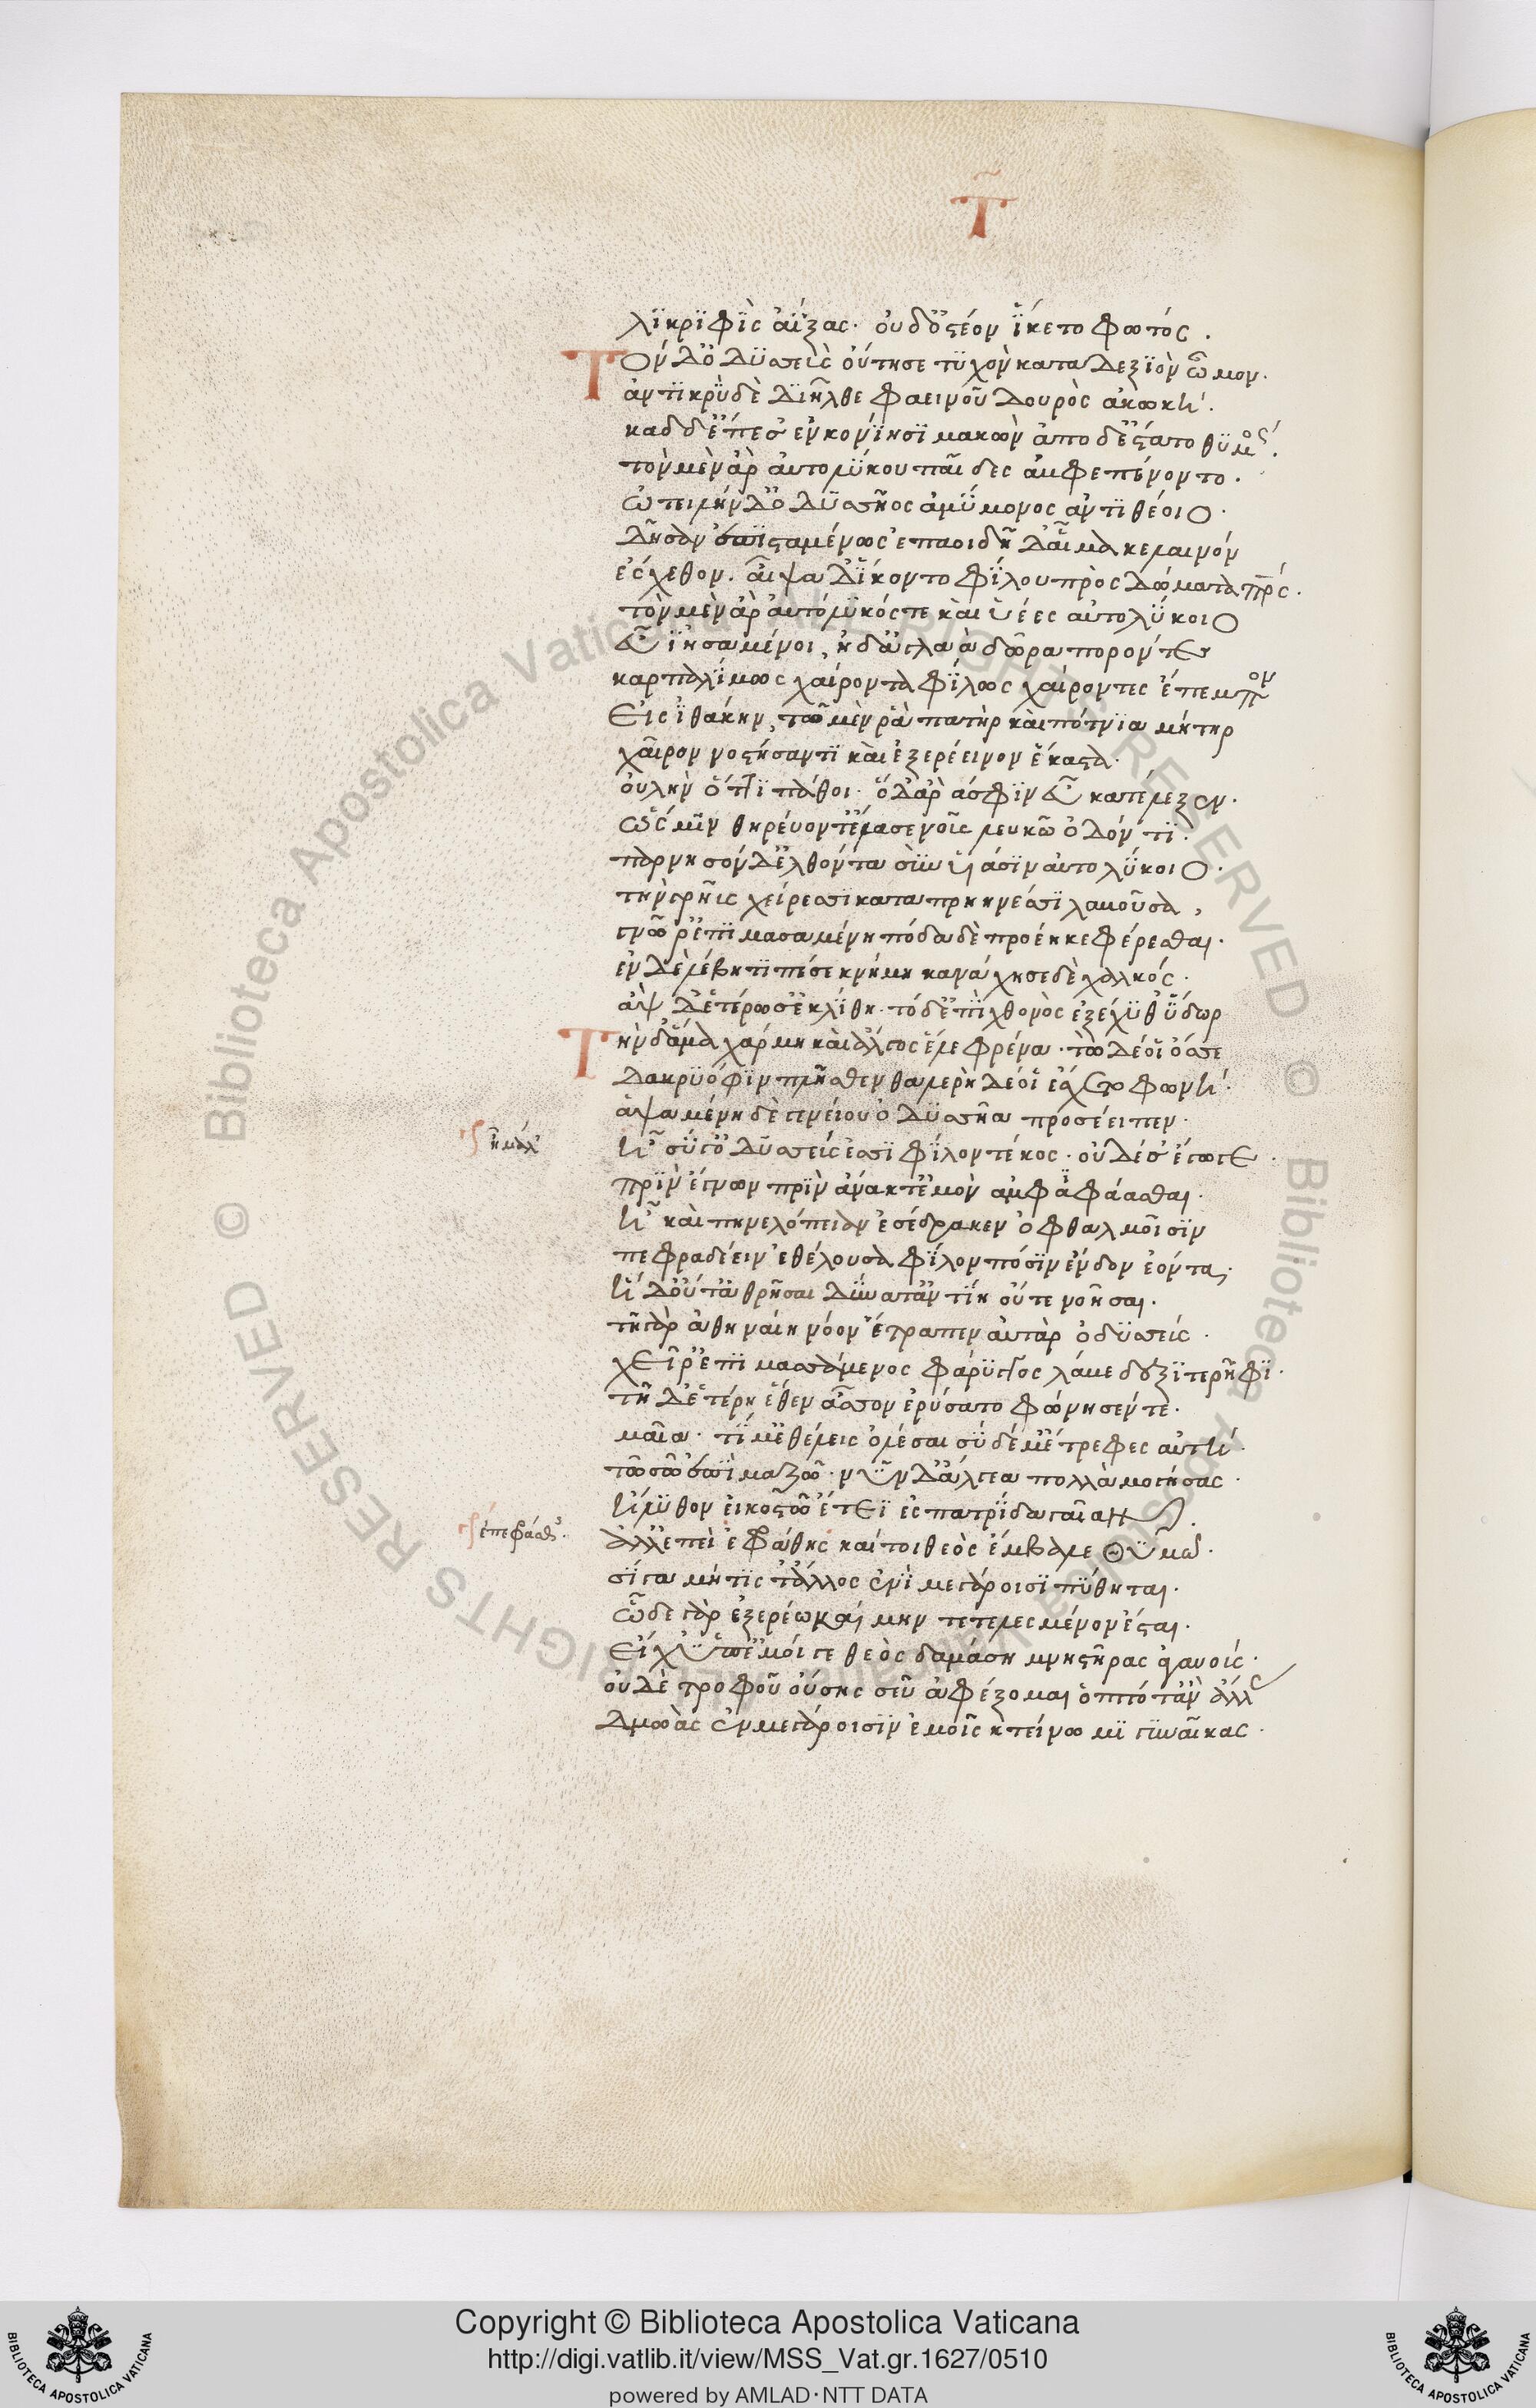 Τ
λϊκρϊφὶς ἀΐξας· οὐδ' ὀστέον ἵκετο φωτός.
Τὸν δ' ὀδυσεὺς οὔτησε τυχὼν κατὰ δεξιὸν ὦμον·
ἀντικρὺ δὲ διῆλθε φαεινοῦ δουρὸς ἀκωκή.
καδ δ' ἔπεσ' ἐν κονίῃσι μακὼν ἀπὸ δ' ἔπτατο θυμός.
τὸν μὲν ἂρ αὐτολύκου παῖδες ἀμφεπένοντο.
ὠτειλὴν δ' ὀδυσῆος ἀμύμονος ἀντιθέοιο·
δῆσαν ἐπισταμένως ἐπαοιδῇ δ' αἷμα κελαινὸν
ἔσχεθον. αἶψα δ' ἵκοντο φίλου πρὸς δώματα πρς.
τὸν μὲν ἂρ αὐτόλυκός τε καὶ υἱέες αὐτολύκοιο
εὖ ἰησάμενοι, ἠδ' ἀγλαὰ δῶρα πορόντες
καρπαλίμως χαίροντα φίλως χαίροντες ἔπεμπον
Εἰς ἰθάκην, τῶ μέν ῥα πατὴρ καὶ πότνια μήτηρ
χαῖρον νοστήσαντι καὶ ἐξερέεινον ἕκαστα·
οὐλὴν ὅττι πάθοι· ὁ δ' ἄρά σφιν εὖ κατέλεξεν·
ὥς μιν θηρεύοντ' ἔλασεν σῦς λευκῶ ὀδόντι·
παρνησὸν δ' ἐλθόντα σὺν υἱάσιν αὐτολύκοιο·
τὴν γρηῢς χείρεσι καταπρηνέσι λαβοῦσα,
γνῶ ῥ' ἐπιμασαμένη πόδα δὲ προέηκε φέρεσθαι·
ἐν δὲ λέβητι πέσε κνήμη κανάχησε δὲ χαλκός·
ἂψ δ' ἑτέρωσ' ἐκλίθη· τὸ δ' ἐπὶ χθονὸς ἐξέχυθ' ὕδωρ
Τὴν δ' ἅμα χάρμη καὶ ἄλγος ἕλε φρένα· τὼ δέ οἱ ὄσσε
δακρυόφιν πλῆσθεν θαλερὴ δέ οἱ ἔσχετο φωνή·
ἁψαμένη δὲ γενείου ὀδυσῆα προσέειπεν·
γρ ἦ μάλ' ἦ σύ γ' ὀδυσεύς ἐσσι φίλον τέκος· οὐδέ σ' ἔγωγε·
πρὶν ἔγνων πρὶν ἄνακτ' ἐμὸν ἀμφαφάασθαι·
ἦ καὶ πηνελόπειαν ἐσέδρακεν ὀφθαλμοῖσιν
πεφραδέειν ἐθέλουσα φίλον πόσιν ἔνδον ἐόντα·
ἡ δ' οὔτ' ἀθρῆσαι δύνατ' ἀντίη οὔτε νοῆσαι·
τῇ γὰρ ἀθηναίη νόον ἔτραπεν αὐτὰρ ὀδυσεύς·
χεῖρ' ἐπιμασσάμενος φάρυγγος λάβε δεξιτερῆφι·
τῇ δ' ἑτέρῃ ἕθεν ἆσσον ἐρύσατο φώνησέν τε·
μαῖα· τίη μ' ἐθέλεις ὀλέσαι σὺ δέ μ' ἔτρεφες αὐτή·
τῶ σῶ ἐπὶ μαζῶ· νῦν δ' ἄλγεα πολλὰ μογήσας·
ἤλυθον εἰκοστῶ ἔτεϊ ἐς πατρίδα γαῖαν.
γρ ἐπεφράσθ. ἀλλ' ἐπεὶ ἐφράσθης καί τοι θεὸς ἔμβαλε θυμῶ·
σίγα μήτις τ' ἄλλος ἐνὶ μεγάροισι πύθηται·
ὧδε γὰρ ἐξερέω καὶ μὴν τετελεσμένον ἔσται·
Εἴ χ' ὑπ' ἐμοί γε θεὸς δαμάσῃ μνηστῆρας ἀγαυούς·
οὐδὲ τροφοῦ οὔσης σεῦ ἀφέξομαι ὁππότ' ἂν ἄλλς
δμωὰς ἐν μεγάροισιν ἐμοῖς κτείνωμι γυναῖκας·
Copyright © Biblioteca Apostolica Vaticana
http://digi.vatlib.it/view/MSS_Vat.gr.1627/0510
powered by AMLAD·NTT DATA